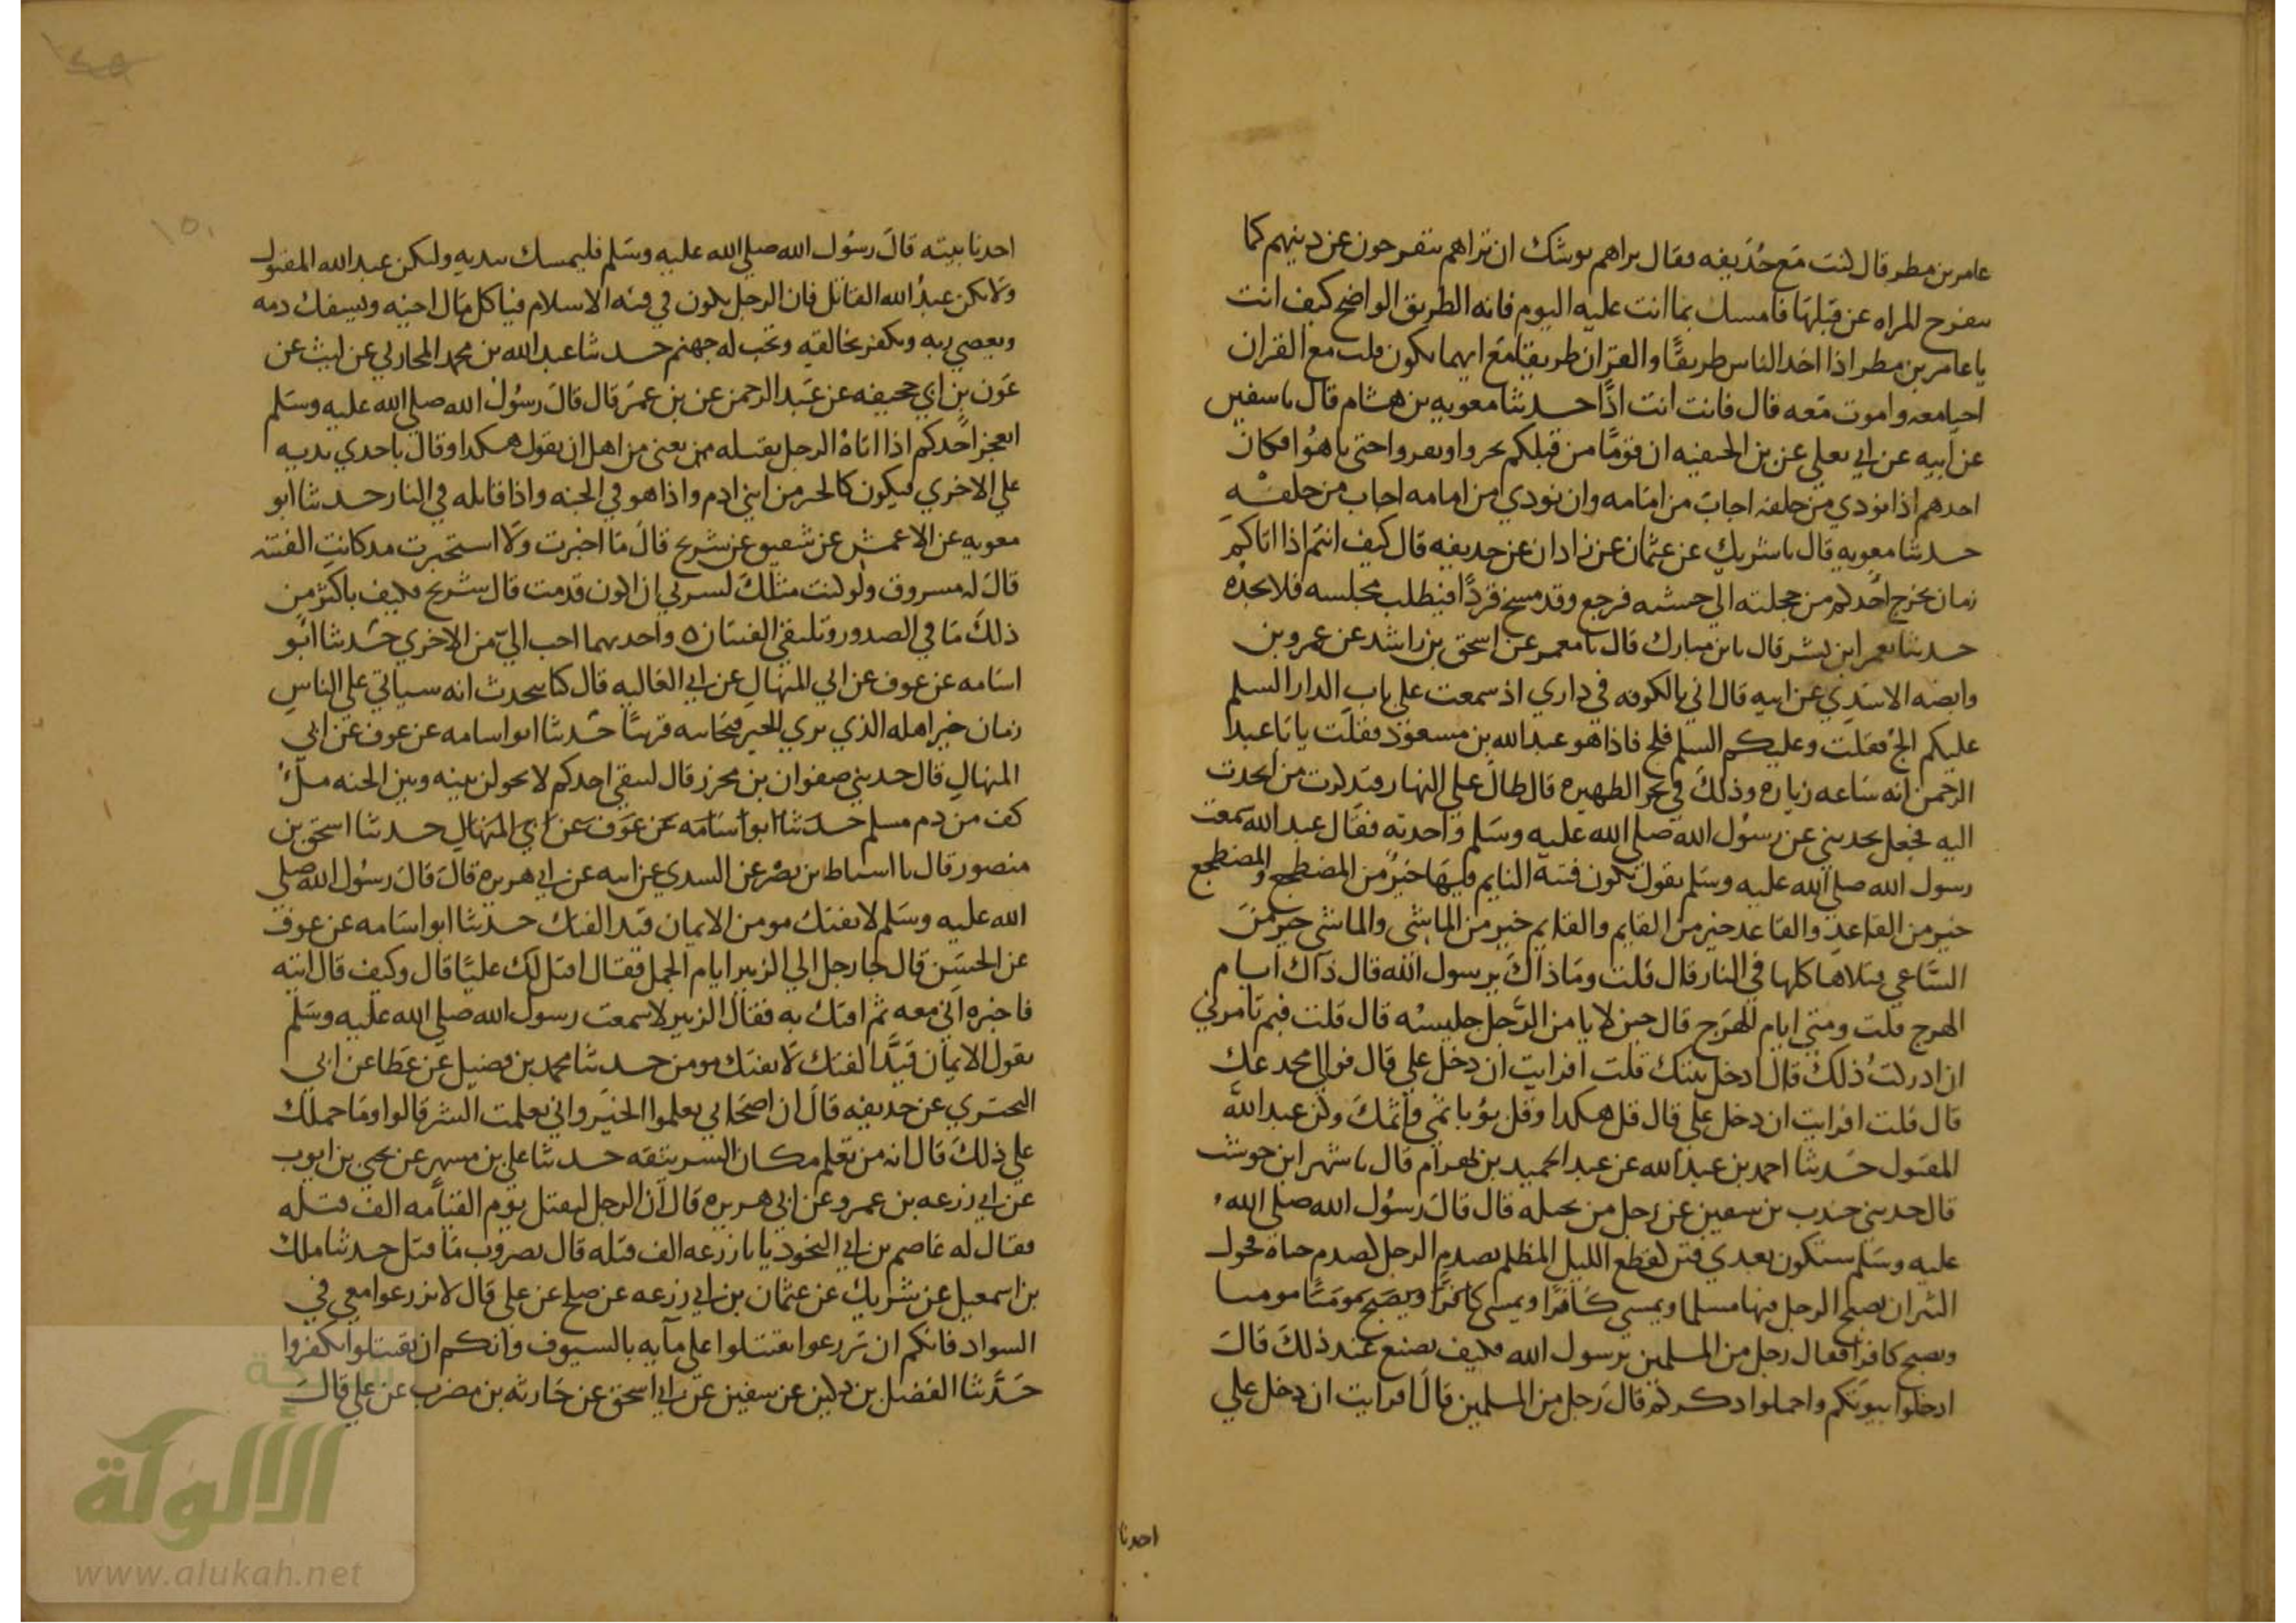 عامر بن مطر قال كنت مع حذيفه فقال يراهم يوشك ان تراهم ينفرجون عن دينهم كما
ينفرج المراه عن قبلها فامسك بما انت عليه اليوم فانه الطريق الواضح كيف انت
يا عامر بن مطر اذا اخذ الناس طريقًا والقران طريقًا مع ايهما تكون قلت مع القران
احيا معه واموت معه قال فانت انت اذًا حدثنا معويه بن هشام قال نا سفين
عن ابيه عن ابي يعلي عن بن الحنفيه ان قومًا من قبلكم تحروا ونفروا حتى تاهوا فكان
احدهم اذا نودي من خلفه اجاب من امامه وان نودي من امامه اجاب من خلفه
حدثنا معويه قال نا شريك عن عثمان عن زادان عن حذيفه قال كيف انتم اذا اتاكم
زمان يخرج احدكم من حجلته الي حشه فيرجع وقد مسخ قردًا فيطلب مجلسه فلا يجده
حدثنا يعمر ابن بشر قال نا بن مبارك قال نا معمر عن اسحق بن راشد عن عمرو بن
وابصه الاسدي عن ابيه قال اني بالكوفه في داري اذ سمعت علي باب الدار السلم
عليكم الج فقلت وعليكم السلم فلج فاذا هو عبد الله بن مسعود فقلت يا با عبد
الرحمن ايه ساعه زياره وذلك في نحر الظهيره قال طال علي النهار فتذكرت من اتحدث
اليه فجعل يحدثني عن رسول الله صلي الله عليه وسلم واحدثه فقال عبد الله سمعت
رسول الله صلي الله عليه وسلم يقول تكون فتنه النايم فيها خير من المضطجع والمضطجع
خير من القاعد والقاعد خير من القايم والقايم خير من الماشي والماشي خير من
الساعي قتلاها كلها في النار قال قلت وما ذاك يرسول الله قال ذاك ايام
الهرج قلت ومتي ايام الهرج قال حين لا يامن الرجل جليسه قال قلت فبم تامرني
ان ادركت ذلك قال ادخل بيتك قلت افرايت ان دخل علي قال فوالي مخدعك
قال قلت افرايت ان دخل علي قال قل هكذا وقل بؤ باثمي واثمك وكن عبد الله
المقتول حدثنا احمد بن عبد الله عن عبد الحميد بن بهرام قال نا شهر ابن حوشب
قال حدثني جندب بن سفين عن رجل من بجيله قال قال رسول الله صلي الله
عليه وسلم ستكون بعدي فتن كقطع الليل المظلم تصدم الرجل كصدم حباه فحول
الثيران يصبح الرجل فيها مسلما ويمسي كافرًا ويمسي كافرًا ويصبح مومنًا مومنا
ويصبح كافرًا فقال رجل من المسلمين يرسول الله فكيف نصنع عند ذلك قال
ادخلوا بيوتكم واخملوا ذكركم قال رجل من المسلمين قال افرايت ان دخل علي
احدنا
احدنا بيته قال رسول الله صلي الله عليه وسلم فليمسك بيديه وليكن عبد الله المقتول
ولا يكن عبد الله القاتل فان الرجل يكون في فئه الاسلام فياكل مال اخيه ويسفك دمه
ويعصي ربه ويكفر بخالقه وتجب له جهنم حدثنا عبد الله بن محمد المحاربي عن ليث عن
عون بن ابي جحيفه عن عبد الرحمن عن بن عمر قال قال رسول الله صلي الله عليه وسلم
ايعجز احدكم اذا اتاه الرجل يقتله من يعني من اهل ان يقول هكذا وقال باحدي يديه
علي الاخري فيكون كالخير من ابني ادم واذا هو في الجنه واذا قاتله في النار حدثنا ابو
معويه عن الاعمش عن شقيق عن شريح قال ما اخبرت ولا استخبرت مذ كانت الفتنه
قال له مسروق ولو كنت مثلك لسرني ان اكون قد مت قال شريح فكيف باكثر من
ذلك ما في الصدور وتلتقي الفئتان واحديهما احب الي من الاخري حدثنا ابو
اسامه عن عوف عن ابي المنهال عن ابي العاليه قال كنا نتحدث انه سياتي علي الناس
زمان خير اهله الذي يري الخير فيجانبه قريبًا حدثنا ابو اسامه عن عوف عن ابي
المنهال قال حدثني صفوان بن محرز قال ليتقي احدكم لا يحولن بينه وبين الجنه ملء
كف من دم مسلم حدثنا ابو اسامه عن عوف عن ابي المنهال حدثنا اسحق بن
منصور قال نا اسباط بن نصر عن السدي عن ابيه عن ابي هريره قال قال رسول الله صلي
الله عليه وسلم لا يفتك مومن الايمان قيد الفتك حدثنا ابو اسامه عن عوف
عن الحسن قال جا رجل الي الزبير ايام الجمل فقال اقتل لك عليًا قال وكيف قال اتيه
فاخبره اني معه ثم افتك به فقال الزبير لا سمعت رسول الله صلي الله عليه وسلم
يقول الايمان قيد الفتك لا يفتك مومن حدثنا محمد بن فضيل عن عطا عن ابي
البختري عن حذيفه قال ان اصحابي تعلموا الخير واني تعلمت الشر قالوا وما حملك
علي ذلك قال انه من تعلم مكان الشر يتقه حدثنا علي بن مسهر عن يحيي بن ايوب
عن ابي زرعه بن عمرو عن ابي هريره قال ان الرجل ليقتل يوم القيامه الف قتله
فقال له عاصم بن ابي النجود يا با زرعه الف قتله قال بضروب ما قتل حدثنا ملك
بن اسمعيل عن شريك عن عثمان بن ابي زرعه عن صلح عن علي قال لا تزرعوا معي في
السواد فانكم ان تزرعوا تقتتلوا علي مآيه بالسيوف وانكم ان تقتتلوا تكفروا
حدثنا الفضل بن دكين عن سفين عن ابي اسحق عن حارثه بن مضرب عن علي قال
شبكة
الألوكة
www.alukah.net